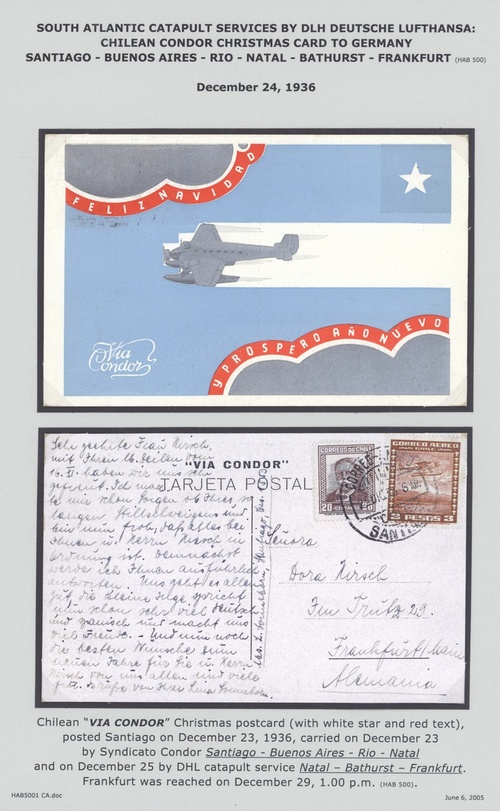 SOUTH ATLANTIC CATAPULT SERVICES BY DLH DEUTSCHE LUFTHANSA:
CHILEAN CONDOR CHRISTMAS CARD TO GERMANY
SANTIAGO - BUENOS AIRES - RIO - NATAL - BATHURST - FRANKFURT (HAB 500)
December 24, 1936
FELIZ NAVIDAD
Y PROSPERO AÑO NUEVO
Via
Condor
Sehr geehrte Frau Hirsch,
mit Ihren
haben wir uns sehr
gefreut. Ich
schon Sorgen ob Ihres so
langen Stillschweigens und
bin nun froh, daß alles bei
Ihnen u. Herrn Hirsch in
Ordnung ist. Demnächst
werde ich Ihnen ausführlich
antworten. Uns geht es allen
gut, die kleine Helga spricht
nun schon sehr viel deutsch
und spanisch und macht uns
viel Freude. - Und nun noch
die besten Wünsche zum
neuen Jahre für Sie u. Herrn
Hirsch von uns allen und viele
Grüße von Ihrer
"VIA CONDOR"
TARJETA POSTAL
CORREOS DE CHILE
20 CENTAVOS 20
CORREO AEREO
CHILE
3 PESOS 3
SANTIAGO
Señora
Dora Hirsch
Im Trutz 29.
Frankfurt/Main
Alemania
Chilean "VIA CONDOR" Christmas postcard (with white star and red text),
posted Santiago on December 23, 1936, carried on December 23
by Syndicato Condor Santiago - Buenos Aires - Rio - Natal
and on December 25 by DHL catapult service Natal – Bathurst – Frankfurt.
Frankfurt was reached on December 29, 1.00 p.m. (HAB 500).
HAB5001 CA.doc
June 6, 2005